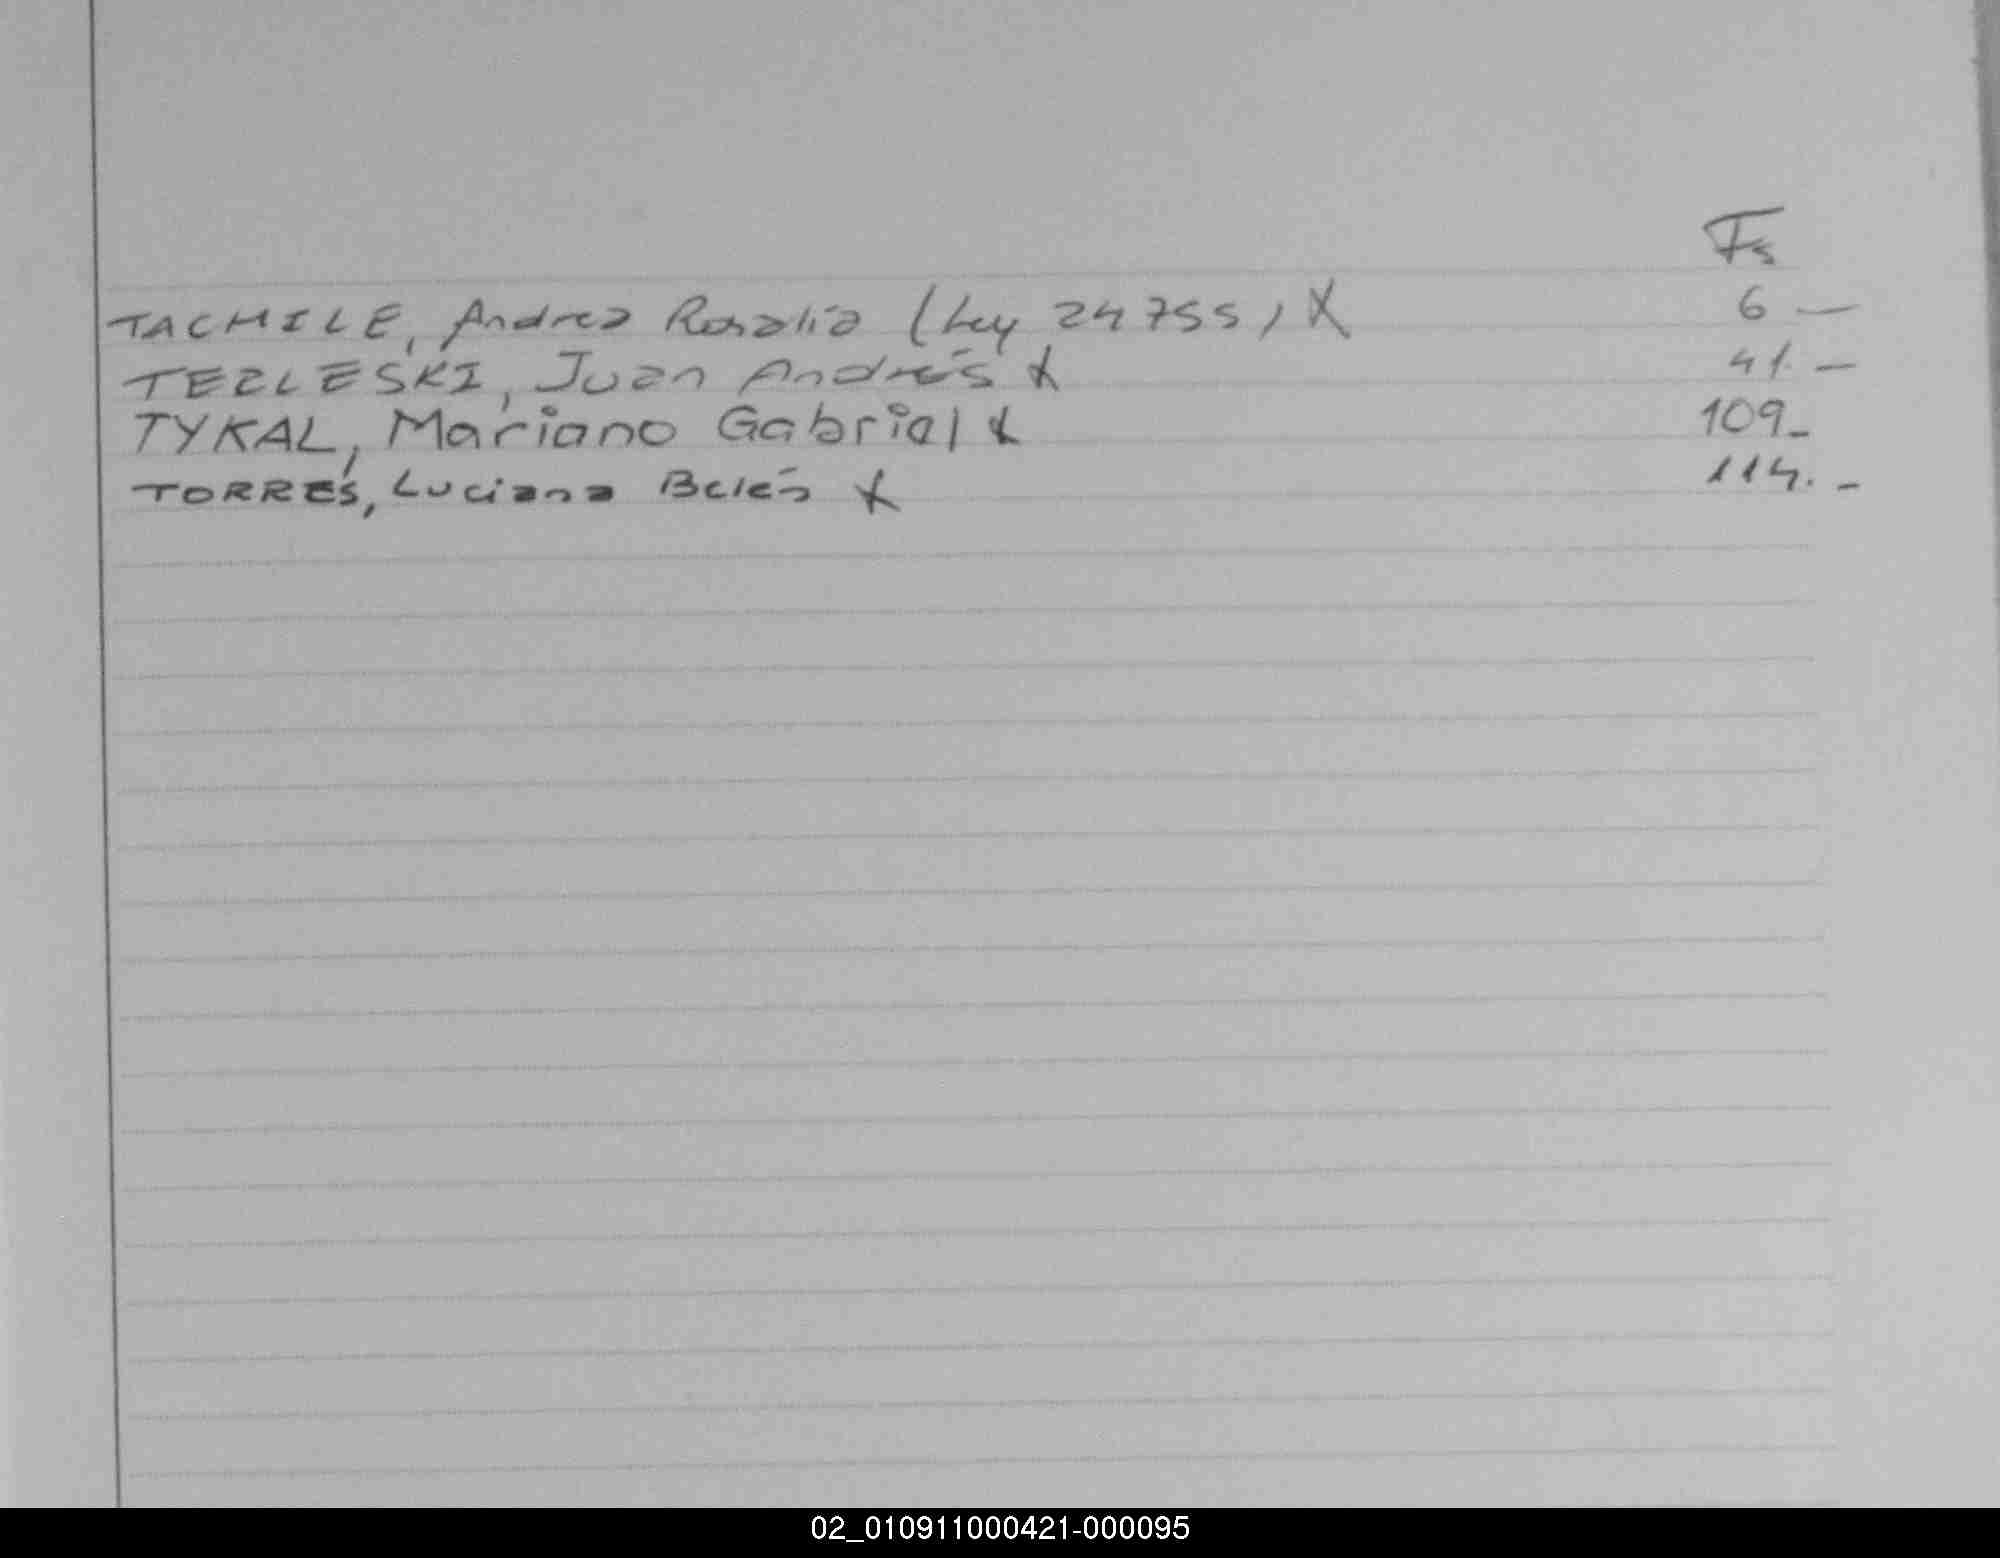 Fs
TACHILE, Andrea Rosalia (Ley 24755) X 6 —
TEZLESKI, Juan Andrés X 41. —
TYKAL, Mariano Gabriel X 109_
TORRES, Luciana Belén X 114. -
02_010911000421-000095